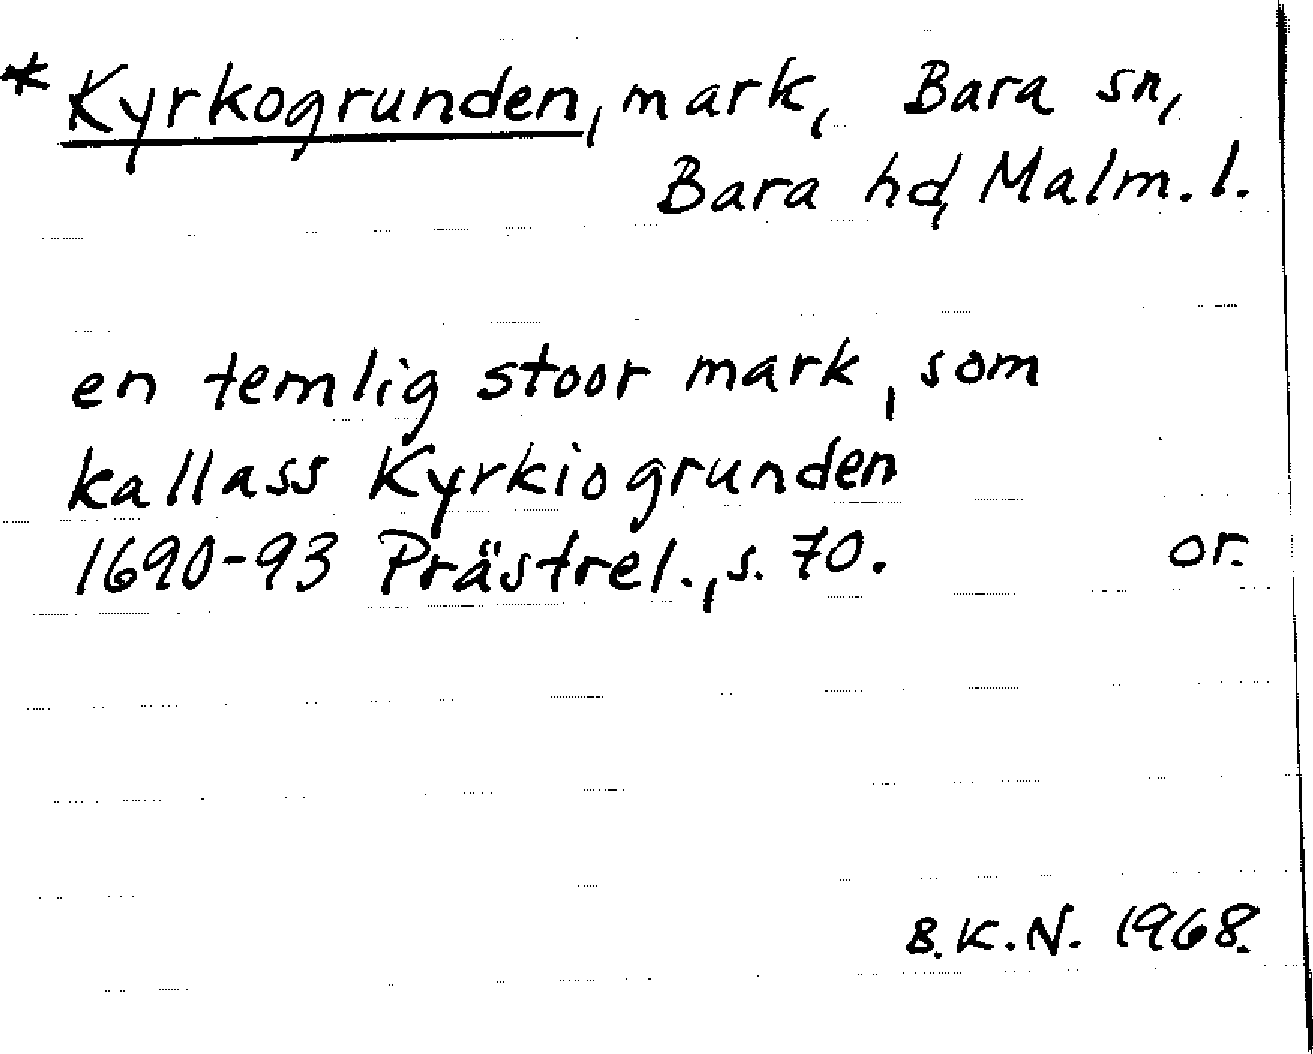 * Kyrkogrunden, mark, Bara sn,
Bara hd, Malm. l.
en temlig stoor mark, som
kallass Kyrkiogrunden
1690-93 Prästrel., s. 70. or.
B.K.N. 1968.